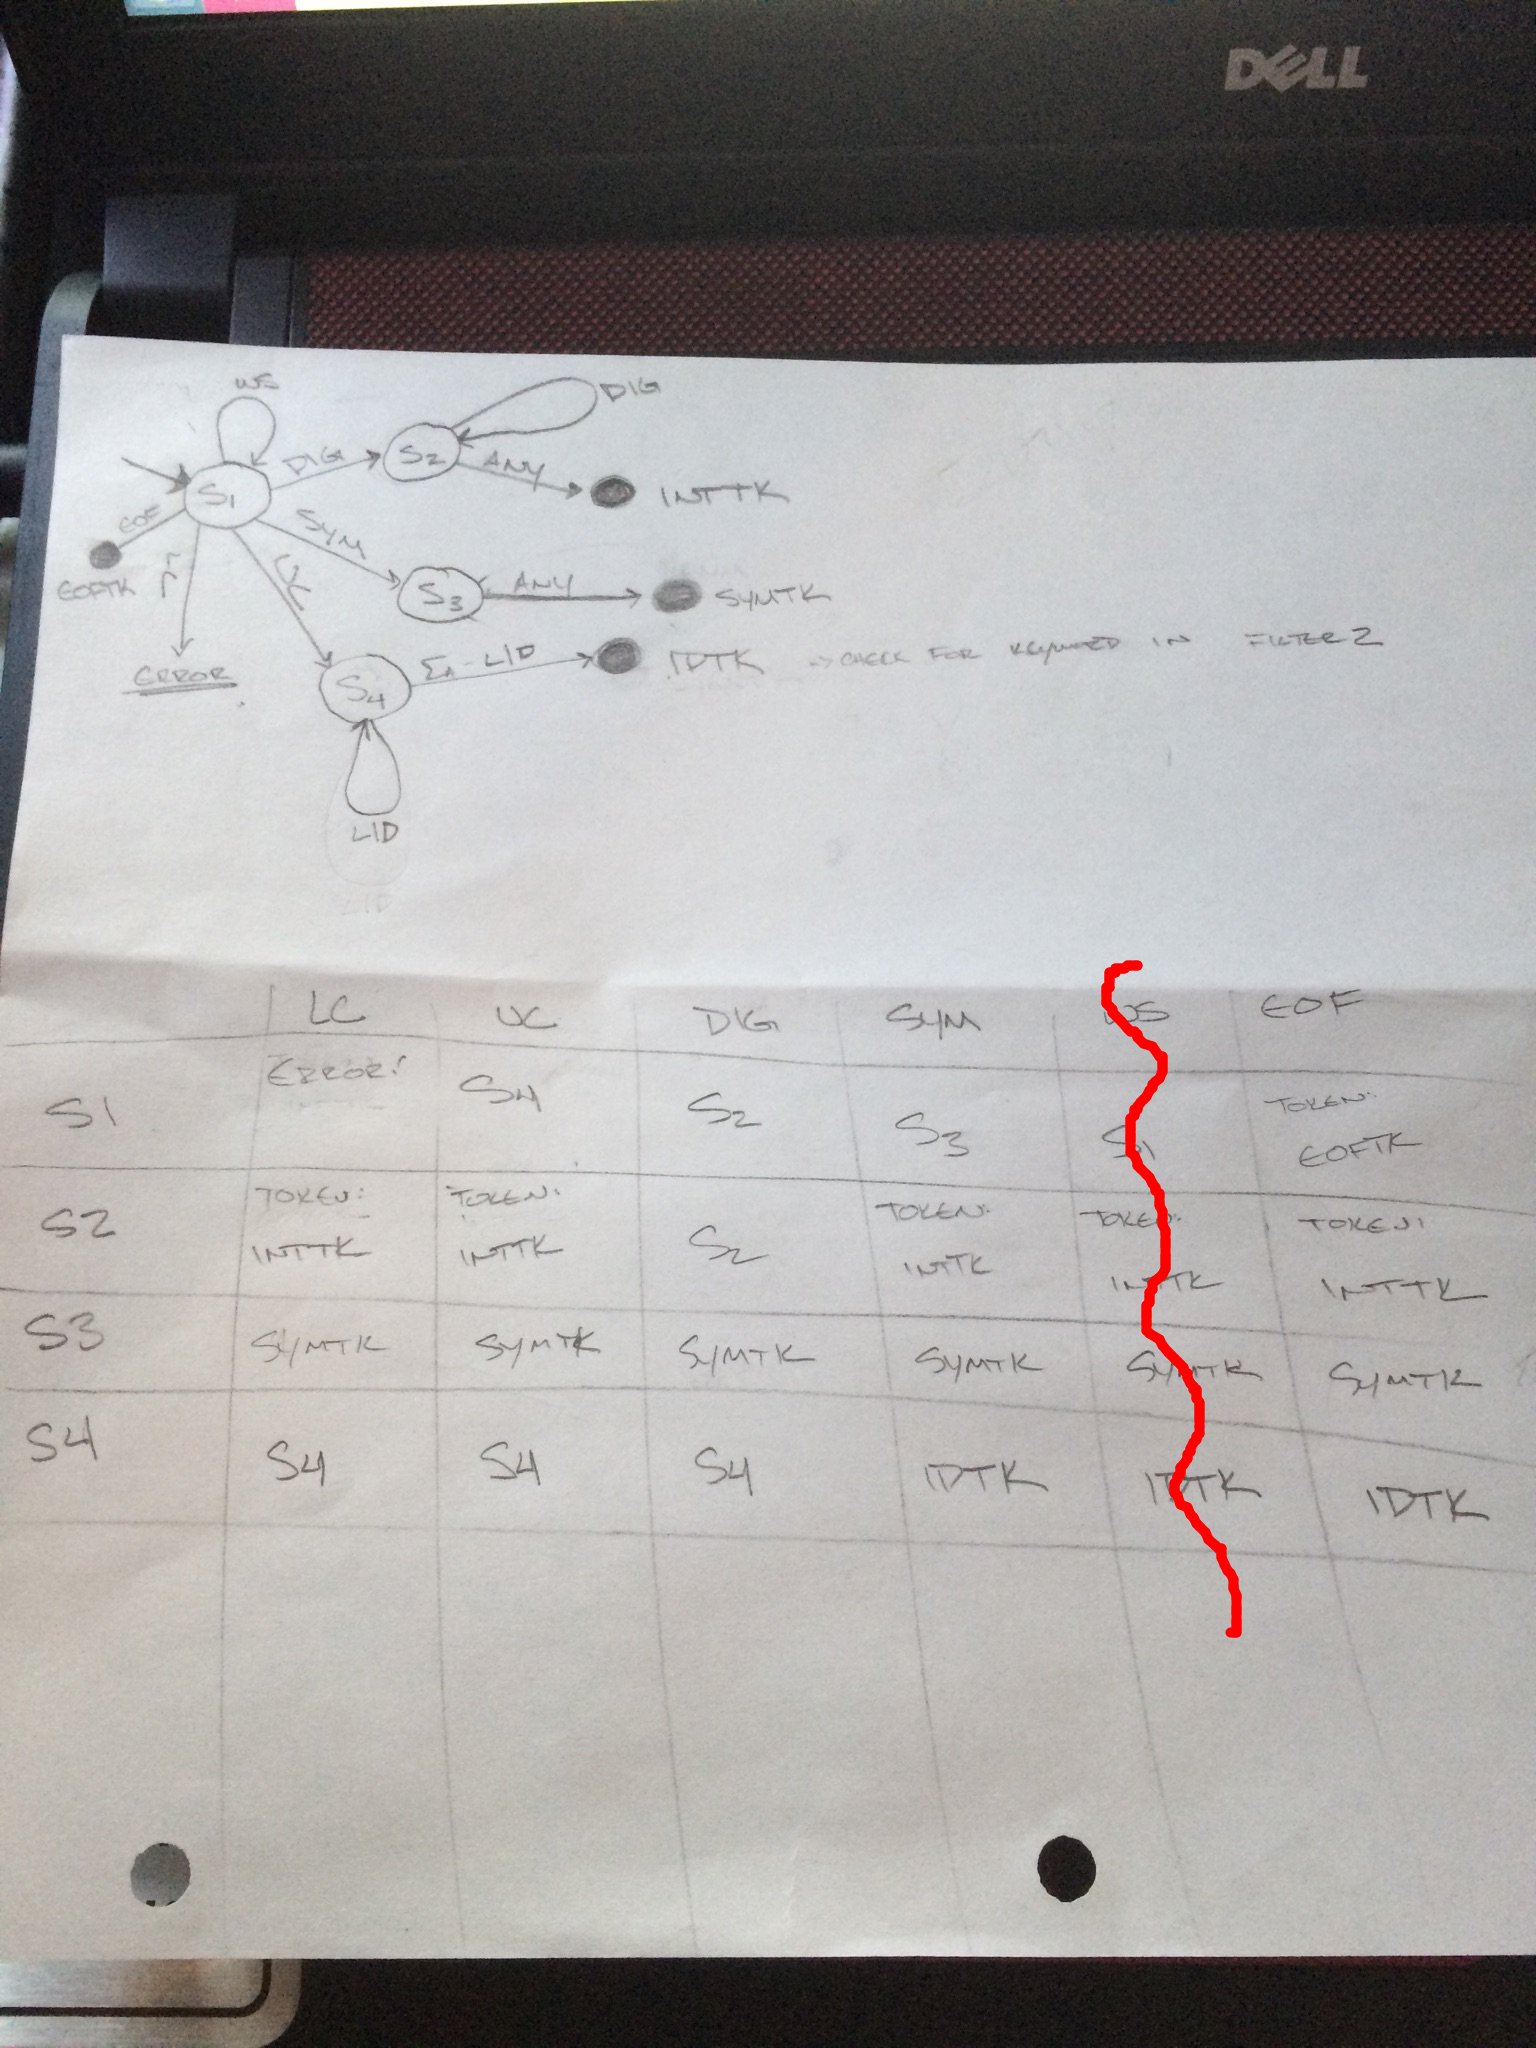 DELL
WS
DIG
DIG
S2
ANY
INTTK
S1
EOF
SYM
EOFTK
S3
ANY
SYMTK
ERROR
S4
LID
IDTK -> CHECK FOR KEYWORD IN FILTER 2
LID
LID
LC UC DIG SYM WS EOF
S1 ERROR! S4 S2 S3 S1 TOKEN: EOFTK
S2 TOKEN: INTTK TOKEN: INTTK S2 TOKEN: INTTK TOKEN: INTTK TOKEN: INTTK
S3 SYMTK SYMTK SYMTK SYMTK SYMTK SYMTK
S4 S4 S4 S4 IDTK IDTK IDTK